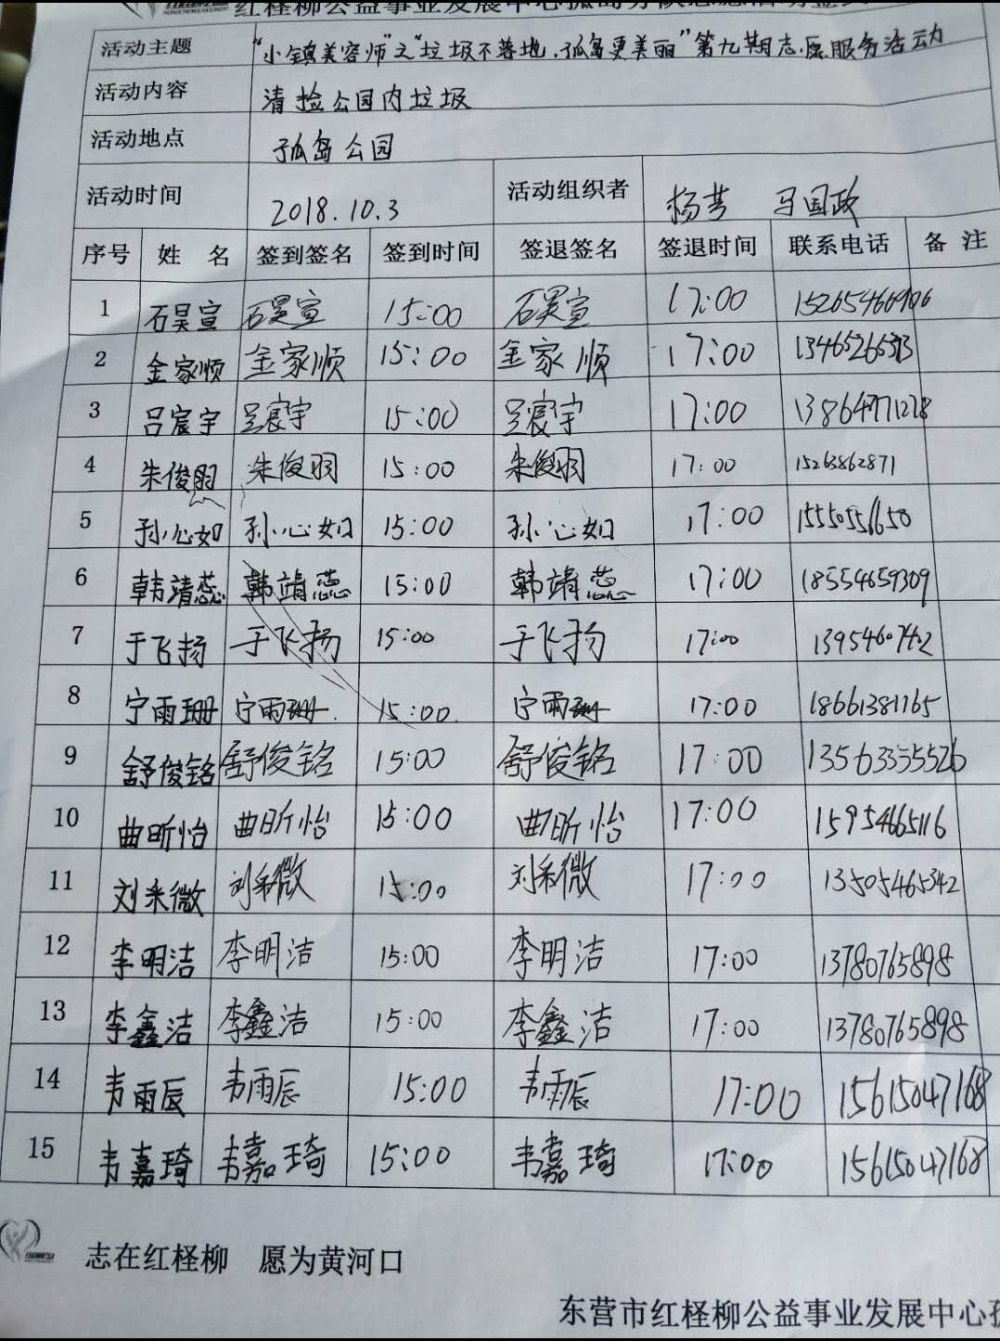 红柽柳公益事业发展中心孤岛分队志愿活动签
活动主题 “小镇美容师”之“垃圾不落地,孤岛更美丽”第九期志愿服务活动
活动内容 清捡公园内垃圾
活动地点 孤岛公园
活动时间 2018.10.3 活动组织者 杨芳 马国政
序号 姓名 签到签名 签到时间 签退签名 签退时间 联系电话 备注
1 石昊宣 石昊宣 15:00 石昊宣 17:00
2 金家顺 金家顺 15:00 金家顺 17:00
3 吕宸宇 吕宸宇 15:00 吕宸宇 17:00 13864771278
4 朱俊羽 朱俊羽 15:00 朱俊羽 17:00 15263862871
5 孙心如 孙心如 15:00 孙心如 17:00
6 韩靖蕊 韩靖蕊 15:00 韩靖蕊 17:00 18554659309
7 于飞扬 于飞扬 15:00 于飞扬 17:00
8 宁雨珊 宁雨珊 15:00 宁雨珊 17:00 18661381165
9 舒俊铭 舒俊铭 15:00 舒俊铭 17:00 13563355526
10 曲昕怡 曲昕怡 15:00 曲昕怡 17:00 15954665116
11 刘采微 刘采微 15:00 刘采微 17:00 13505465342
12 李明洁 李明洁 15:00 李明洁 17:00 13780765898
13 李鑫洁 李鑫洁 15:00 李鑫洁 17:00 13780765898
14 韦雨辰 韦雨辰 15:00 韦雨辰 17:00 15615047168
15 韦嘉琦 韦嘉琦 15:00 韦嘉琦 17:00 15615047168
志在红柽柳 愿为黄河口
东营市红柽柳公益事业发展中心孤